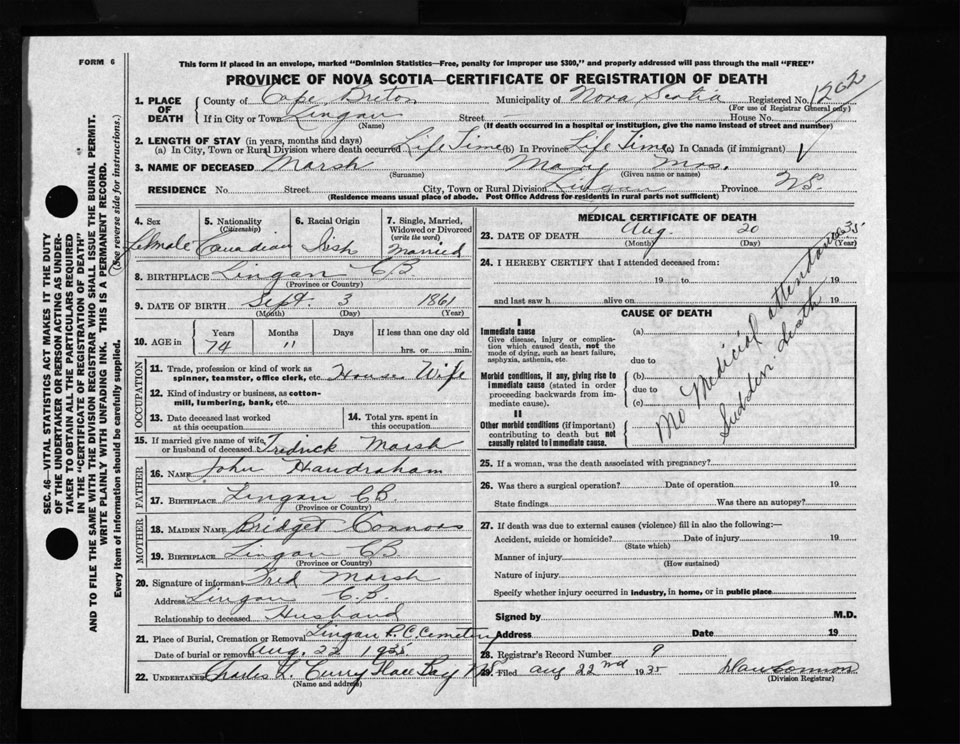 FORM 6
This form if placed in an envelope, marked "Dominion Statistics—Free, penalty for improper use $300," and properly addressed will pass through the mail "FREE"
PROVINCE OF NOVA SCOTIA—CERTIFICATE OF REGISTRATION OF DEATH
SEC. 46—VITAL STATISTICS ACT MAKES IT THE DUTY
OF THE UNDERTAKER OR PERSON ACTING AS UNDER-
TAKER TO OBTAIN ALL THE PARTICULARS REQUIRED
IN THE "CERTIFICATE OF REGISTRATION OF DEATH"
AND TO FILE THE SAME WITH THE DIVISION REGISTRAR WHO SHALL ISSUE THE BURIAL PERMIT.
WRITE PLAINLY WITH UNFADING INK. THIS IS A PERMANENT RECORD.
Every item of information should be carefully supplied. (See reverse side for instructions.)
1. PLACE OF DEATH County of Cape Breton Municipality of Nova Scotia Registered No. 1262
(For use of Registrar General only)
If in City or Town Lingan Street House No.
(Name) (If death occurred in a hospital or institution, give the name instead of street and number)
2. LENGTH OF STAY (in years, months and days)
(a) In City, Town or Rural Division where death occurred Life Time (b) In Province Life Time (c) In Canada (if immigrant) √
3. NAME OF DECEASED Marsh Mary Mrs.
(Surname) (Given name or names)
RESIDENCE No. Street City, Town or Rural Division Lingan Province NS.
(Residence means usual place of abode. Post Office Address for residents in rural parts not sufficient)
4. Sex Female
5. Nationality (Citizenship) Canadian
6. Racial Origin Irish
7. Single, Married, Widowed or Divorced (write the word) Married
8. BIRTHPLACE Lingan CB
(Province or Country)
9. DATE OF BIRTH Sept. 3 1861
(Month) (Day) (Year)
10. AGE in Years Months Days If less than one day old
74 11 hrs. or min.
OCCUPATION
11. Trade, profession or kind of work as spinner, teamster, office clerk, etc. House Wife
12. Kind of industry or business, as cotton-mill, lumbering, bank, etc.
13. Date deceased last worked at this occupation
14. Total yrs. spent in this occupation
15. If married give name of wife or husband of deceased Fredrick Marsh
FATHER
16. NAME John Handraham
17. BIRTHPLACE Lingan CB.
(Province or Country)
MOTHER
18. MAIDEN NAME Bridget Connors
19. BIRTHPLACE Lingan CB
(Province or Country)
20. Signature of informant Fred Marsh
Address Lingan C.B.
Relationship to deceased Husband
21. Place of Burial, Cremation or Removal Lingan R.C. Cemetery
Date of burial or removal Aug. 22 1935
22. UNDERTAKER Charles L. Curry Glace Bay NS
(Name and address)
MEDICAL CERTIFICATE OF DEATH
23. DATE OF DEATH Aug. 20 1935
(Month) (Day) (Year)
24. I HEREBY CERTIFY that I attended deceased from:
19 to 19
and last saw h alive on 19
CAUSE OF DEATH
I
Immediate cause (a)
Give disease, injury or complication which caused death, not the mode of dying, such as heart failure, asphyxia, asthenia, etc.
due to
Morbid conditions, if any, giving rise to immediate cause (stated in order proceeding backwards from immediate cause). (b)
due to
(c)
II
Other morbid conditions (if important) contributing to death but not causally related to immediate cause.
No Medicial attendance
Sudden death
25. If a woman, was the death associated with pregnancy?
26. Was there a surgical operation? Date of operation 19
State findings Was there an autopsy?
27. If death was due to external causes (violence) fill in also the following:—
Accident, suicide or homicide? Date of injury 19
(State which)
Manner of injury
(How sustained)
Nature of injury
Specify whether injury occurred in industry, in home, or in public place
Signed by M.D.
Address Date 19
28. Registrar's Record Number 9
29. Filed Aug 22nd 1935 Dan Connors
(Division Registrar)